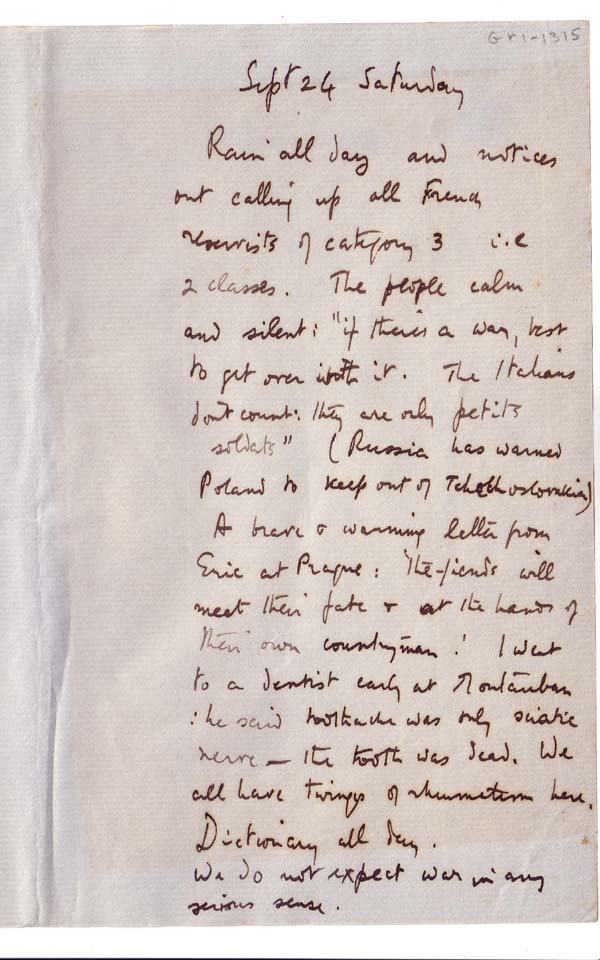 GV1-1315
Sept 24 Saturday
Rain all day and notices
out calling up all French
reservists of category 3 i.e
2 classes. The people calm
and silent: "if there's a war, best
to get over with it. The Italians
don't count: they are only petits
soldats" (Russia has warned
Poland to keep out of Tchekhoslovakia)
A brave & warming letter from
Eric at Prague: 'The fiends will
meet their fate & at the hands of
their own countryman!' I went
to a dentist early at Montauban
: he said toothache was only sciatic
nerve — the tooth was dead. We
all have twings of rheumetism here.
Dictionary all day.
We do not expect war in any
serious sense.